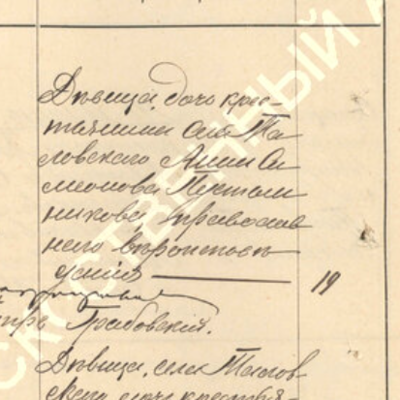 Дѣвица, дочь крес-
тьянина села Та
ловскаго Анна Си
меонова Пустош
никова, православ
наго вѣроисповѣ
данія — 19
Грабовскій.
Дѣвица, села Талов-